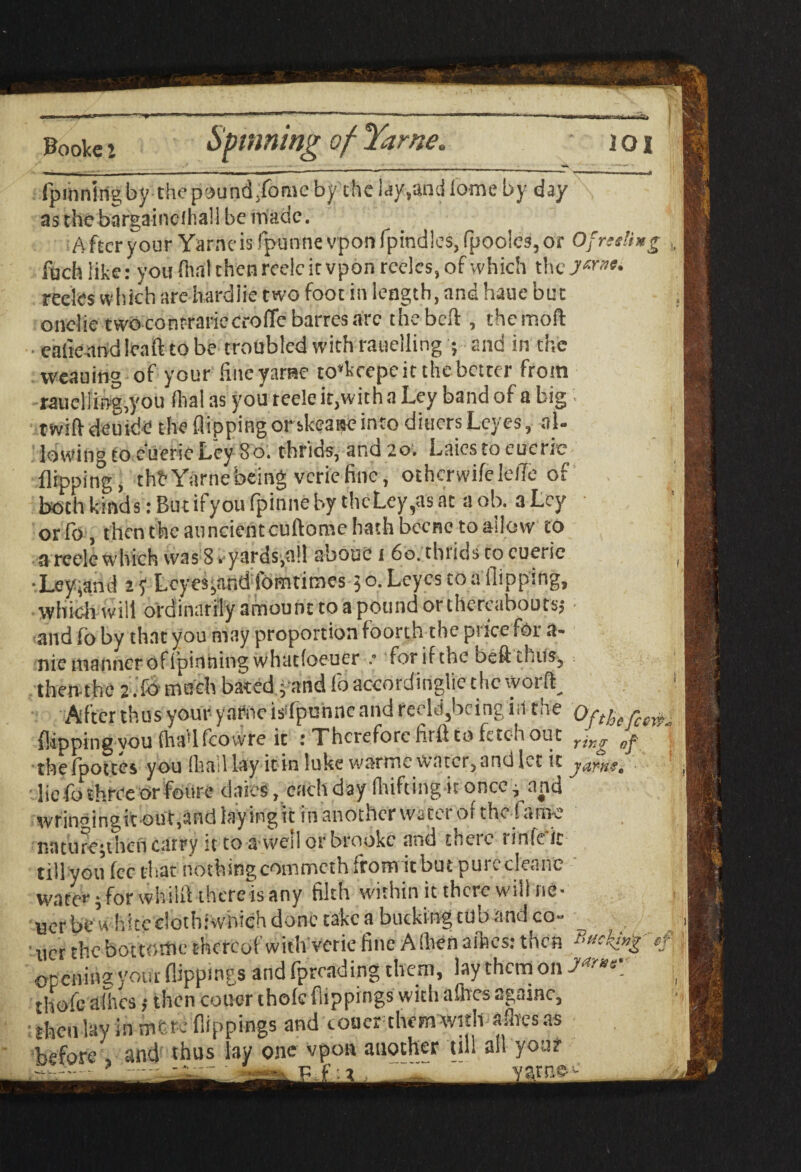 Booke 2 Spinning of Yarne. 101
ſpinning by the pound, ſome by the lay, and ſome by day
as the bargaine ſhall be made.
After your Yarne is ſpunne vpon ſpindles, ſpooles, or
ſuch like: you ſhal then reele it vpon reeles, of which the
Of reeling yarne.
reeles which are hardlie two foot in length, and haue but
onelie two contrarie croſſe barres are the beſt , the moſt
eaſie and leaſt to be troubled with rauelling ; and in the
weauing of your fine yarne to keepe it the better from
rauelling, you ſhal as you reele it, with a Ley band of a big
twiſt deuide the ſlipping or skeane into diuers Leyes, al-
lowing to euerie Ley 80. thrids, and 20. Laies to euerie
ſlipping , the Yarne being verie fine, otherwiſe leſſe of
both kinds : But if you ſpinne by the Ley, as at a ob. a Ley
or ſo , then the auncient cuſtome hath beene to allow to
a reele which was 8. yards, all aboue 160. thrids to euerie
Ley, and 25 Leyes, and ſomtimes 30. Leyes to a ſlipping,
which will ordinarily amount to a pound or thereabouts;
and ſo by that you may proportion foorth the price for a-
nie manner of ſpinning whatſoeuer : for if the beſt thus,
then the 2. ſo much bated ; and ſo accordinglie the worſt
After thus your yarne is ſpunne and reeld, being in the
ſlipping you ſhall ſcowre it : Therefore firſt to fetch out
the ſpottes you ſhall lay it in luke warme water, and let it
Of the ſcowring of yarne.
lie ſo three or foure daies, each day ſhifting it once , and
wringing it out, and laying it in another water of the ſame
nature; then carry it to a well or brooke and there rinſe it
till you ſee that nothing commeth from it but pure cleane
water ; for whilſt there is any filth within it there will ne-
uer be white cloth: which done take a bucking tub and co-
uer the bottome thereof with verie fine Aſhen aſhes: then
Bucking of yarne.
opening your ſlippings and ſpreading them, lay them on
thoſe aſhes ; then couer thoſe ſlippings with aſhes againe,
then lay in more ſlippings and couer them with aſhes as
before , and thus lay one vpon another till all your
F f : 3 yarne